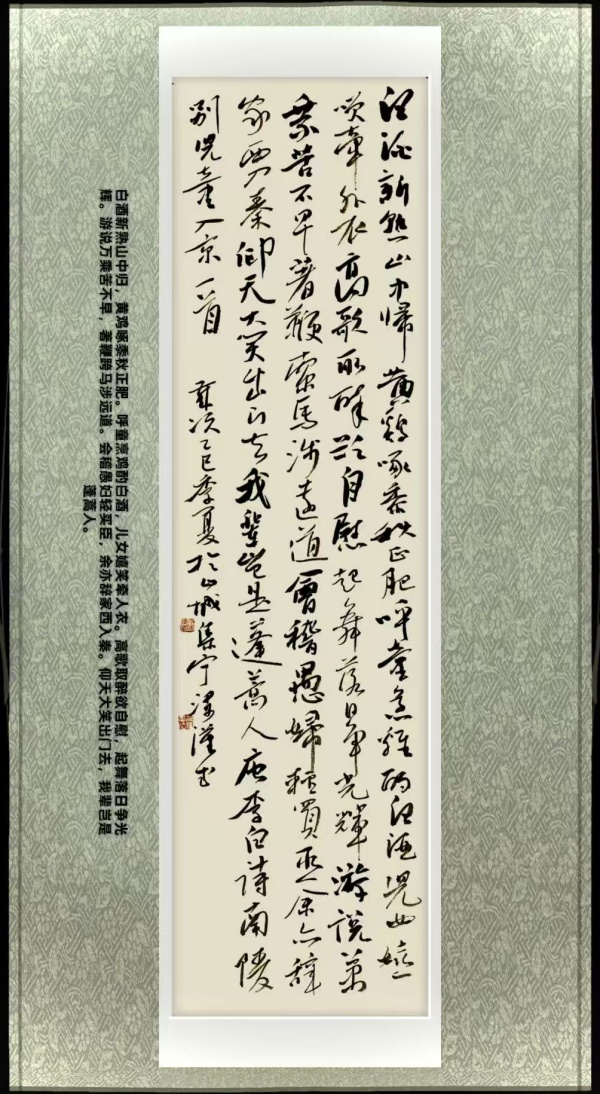 白酒新熟山中歸黄鷄啄黍秋正肥呼童烹雞酌白酒兒女嬉
笑牽人衣高歌取醉欲自慰起舞落日爭光輝游說萬
乘苦不早著鞭跨馬涉遠道會稽愚婦輕買臣余亦辭
家西入秦仰天大笑出门去我輩豈是蓬蒿人唐李白詩南陵
别児童入京一首 歲次乙巳季夏於山城集宁
白酒新熟山中归，黄鸡啄黍秋正肥。呼童烹鸡酌白酒，儿女嬉笑牵人衣。高歌取醉欲自慰，起舞落日争光
辉。游说万乘苦不早，著鞭跨马涉远道。会稽愚妇轻买臣，余亦辞家西入秦。仰天大笑出门去，我辈岂是
蓬蒿人。